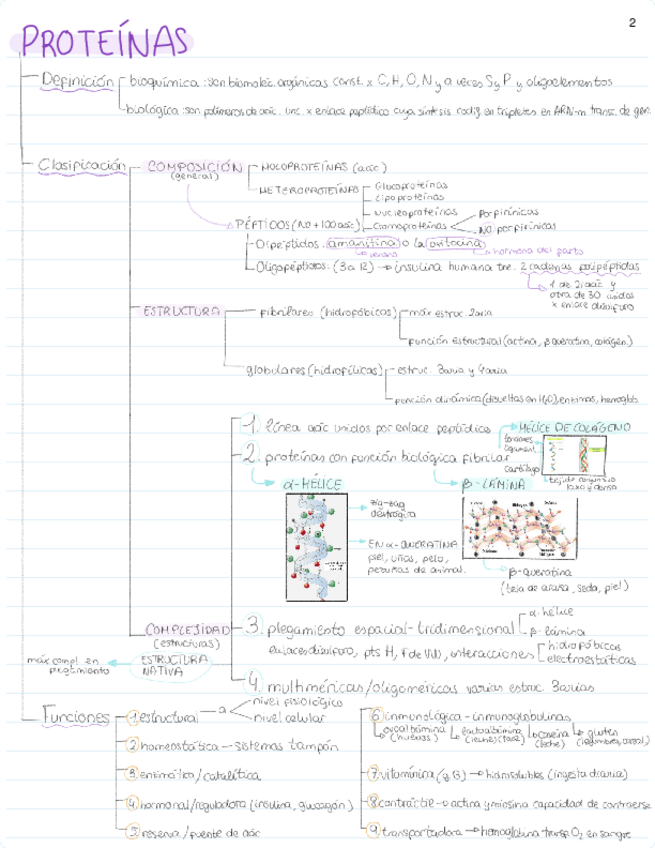 2
PROTEÍNAS
Definición
bioquímica: son biomoléc. orgánicas const. x C, H, O, N y a veces S y P y oligoelementos
biológica: son polímeros de aác. unc. x enlace peptídico cuya síntesis codif. en tripletes en ARN-m transc. de gen.
Clasificación
COMPOSICIÓN
(general)
HOLOPROTEÍNAS (aác)
HETEROPROTEÍNAS
Glucoproteínas
Lipoproteínas
Nucleoproteínas
Cromoproteínas
Porpirínicas
No porpirínicas
PÉPTIDOS (No + 100 aác)
Dipéptidos: amanitina o la oxitocina
veneno
hormona del parto
Oligopéptidos: (3 a 12) → insulina humana tne. 2 cadenas polipéptidas
1 de 21 aác y
otra de 30 unidas
x enlace disulfuro
ESTRUCTURA
fibrilares (hidrofóbicos)
máx estruc. 2aria
función estructural (actina, β queratina, colágen.)
globulares (hidrofílicas)
estruc. 3aria y 4aria
función dinámica (disueltas en H2O), enzimas, hemoglob.
COMPLEJIDAD
(estructuras)
1. línea aác unidos por enlace peptídico
2. proteínas con función biológica fibrilar
HÉLICE DE COLÁGENO
tendones
ligament.
cartílago
tejido conjuntivo
laxo y denso
α-HÉLICE
zig-zag
dextrógira
EN α-QUERATINA
piel, uñas, pelo,
pezuñas de animal.
β-LÁMINA
β-queratina
(tela de araña, seda, piel)
3. plegamiento espacial-tridimensional
α-hélice
β-lámina
enlaces disulfuro, pts H, F de VdW, interacciones
hidrofóbicas
electroestáticas
ESTRUCTURA
NATIVA
máx compl. en
plegamiento
4. multiméricas/oligoméricas varias estruc. 3arias
Funciones
1 estructural - a
nivel fisiológico
nivel celular
2 homeostática - sistemas tampón
3 enzimática/catalítica
4 hormonal/reguladora (insulina, glucagón)
5 reserva/fuente de aác
6 inmunológica - inmunoglobulinas
ovoalbúmina
(huevos)
lactoalbúmina
(leche)
caseína
(leche)
gluten
7 vitamínica → hidrosolubles (ingesta diaria)
8 contráctil → actina y miosina capacidad de contraerse
9 transportadora → hemoglobina transp. O2 en sangre